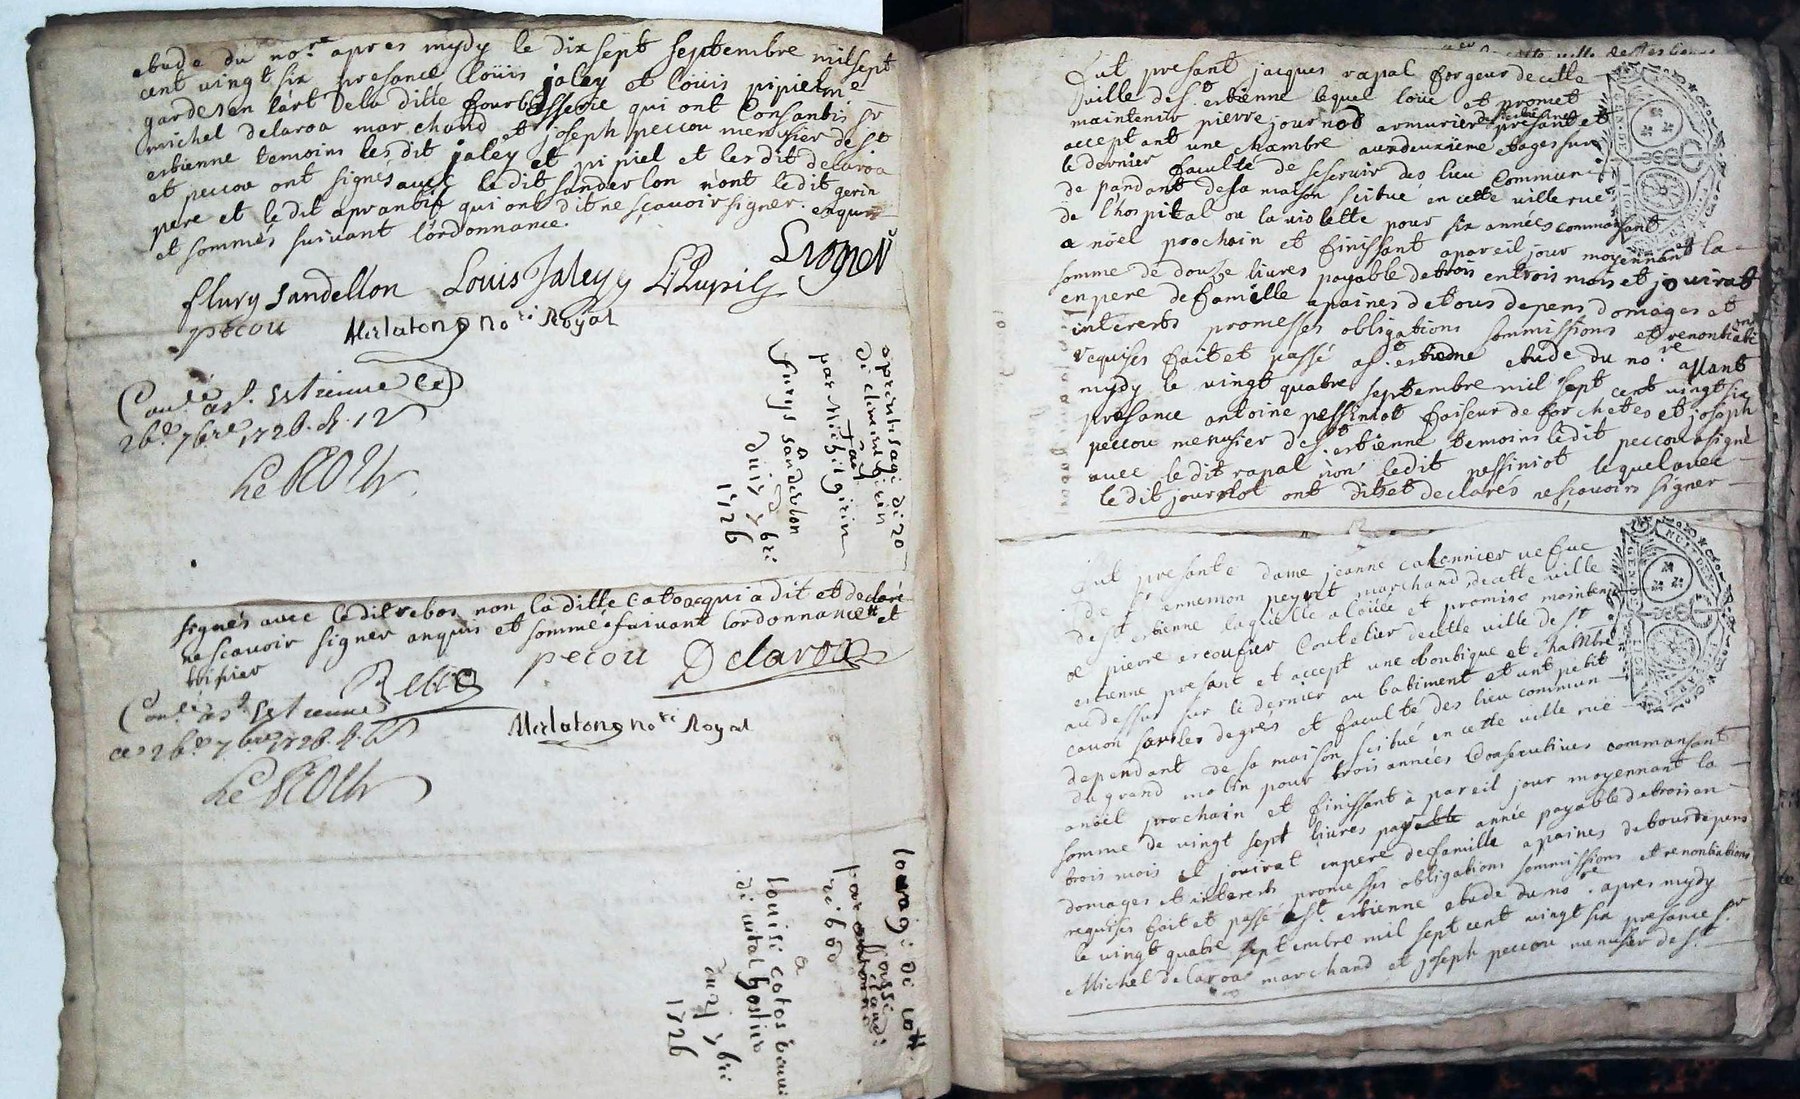 etude du no.re apres mydy le dix sept septembre mil sept
cent vingt six presance loüis jaley et loüis pipiel me
gardes en l'art de la ditte fourbisserie qui ont Consantis sr
michel delaroa marchand et joseph peccou menusier de st
estienne temoins les dit jaley et pipiel et les dit delaroa
et peccou ont signes avec le dit sanderlon nont ledit gerin
pere et ledit aprantif qui ont dit ne sçavoir signer enquis
et sommés suivant l'ordonnance.
flury sandellon Louis Jaley
pecou no.re Royal
Con.lé a St. Estienne Ce
26e 7bre 1726. R. 12
aprentisagi di 20
par Michil girin
a
flurys sanderlon
du 17 7bri
1726
signés avec ledit rebos non la ditte qui a dit et declaré
ne scavoir signer anquis et sommé suivant lordonnance et
pecou Delaroa
Con.lé a St. Estienne
ce 26e 7bre 1726. R.
no.re Royal
louagi di
passé
ribod
a
louisi catos
di vital
du 24 7bri
1726
Fut presant jacques rapal forgeur de cette
ville de st. estienne lequel loüe et promet
maintenir pierre journod armurier presant et
acceptant une chambre au deuxieme etage sur
le dernier faculté de se servir des lieu Commun
de pandant de sa maison scitué en cette ville rue
de l'hospital ou la violette pour six années commansant
a nöel prochain et finissant a pareil jour moyennant la
somme de douze livres payable de trois en trois mois et jouirat
en pere de famille a paines de tous depens domages et
interests promesses obligations sommissions et renontiations
requises fait et passé a st. estienne etude du no.re avant
mydy le vingt quatre septembre mil sept cent vingt six
presance antoine pessiniot faiseur de forchetes et joseph
peccou menusier de st. estienne temoins ledit peccou a signé
avec ledit rapal non ledit pessiniot lequel avec
ledit journot ont dit et declarés ne sçavoirs signer
Fut presante dame jeanne calonnier vefue
de sr ennemon peyret marchand de cette ville
de st estienne laquelle a loüée et promise maintenir
a pierre escoufier Coutelier de cette ville de st
estienne presant et accept une boutique et chambre
au dessus sur le dernier du batiment et un petit
cavon sur les degrés et faculté des lieu commun
dependant de sa maison scitué en cette ville rue
du grand molin pour trois années Consecutives commansant
a nöel prochain et finissant à pareil jour moyennant la
somme de vingt sept livres payable année payable de trois en
trois mois et jouirat en pere de famille a paines de tous depens
domages et interests promesses obligations sommissions et renontiations
requises fait et passé a st. estienne etude du no.re apres mydy
le vingt quatre septembre mil sept cent vingt six presance sr.
Michel delaroa marchand et joseph peccou menusier de st